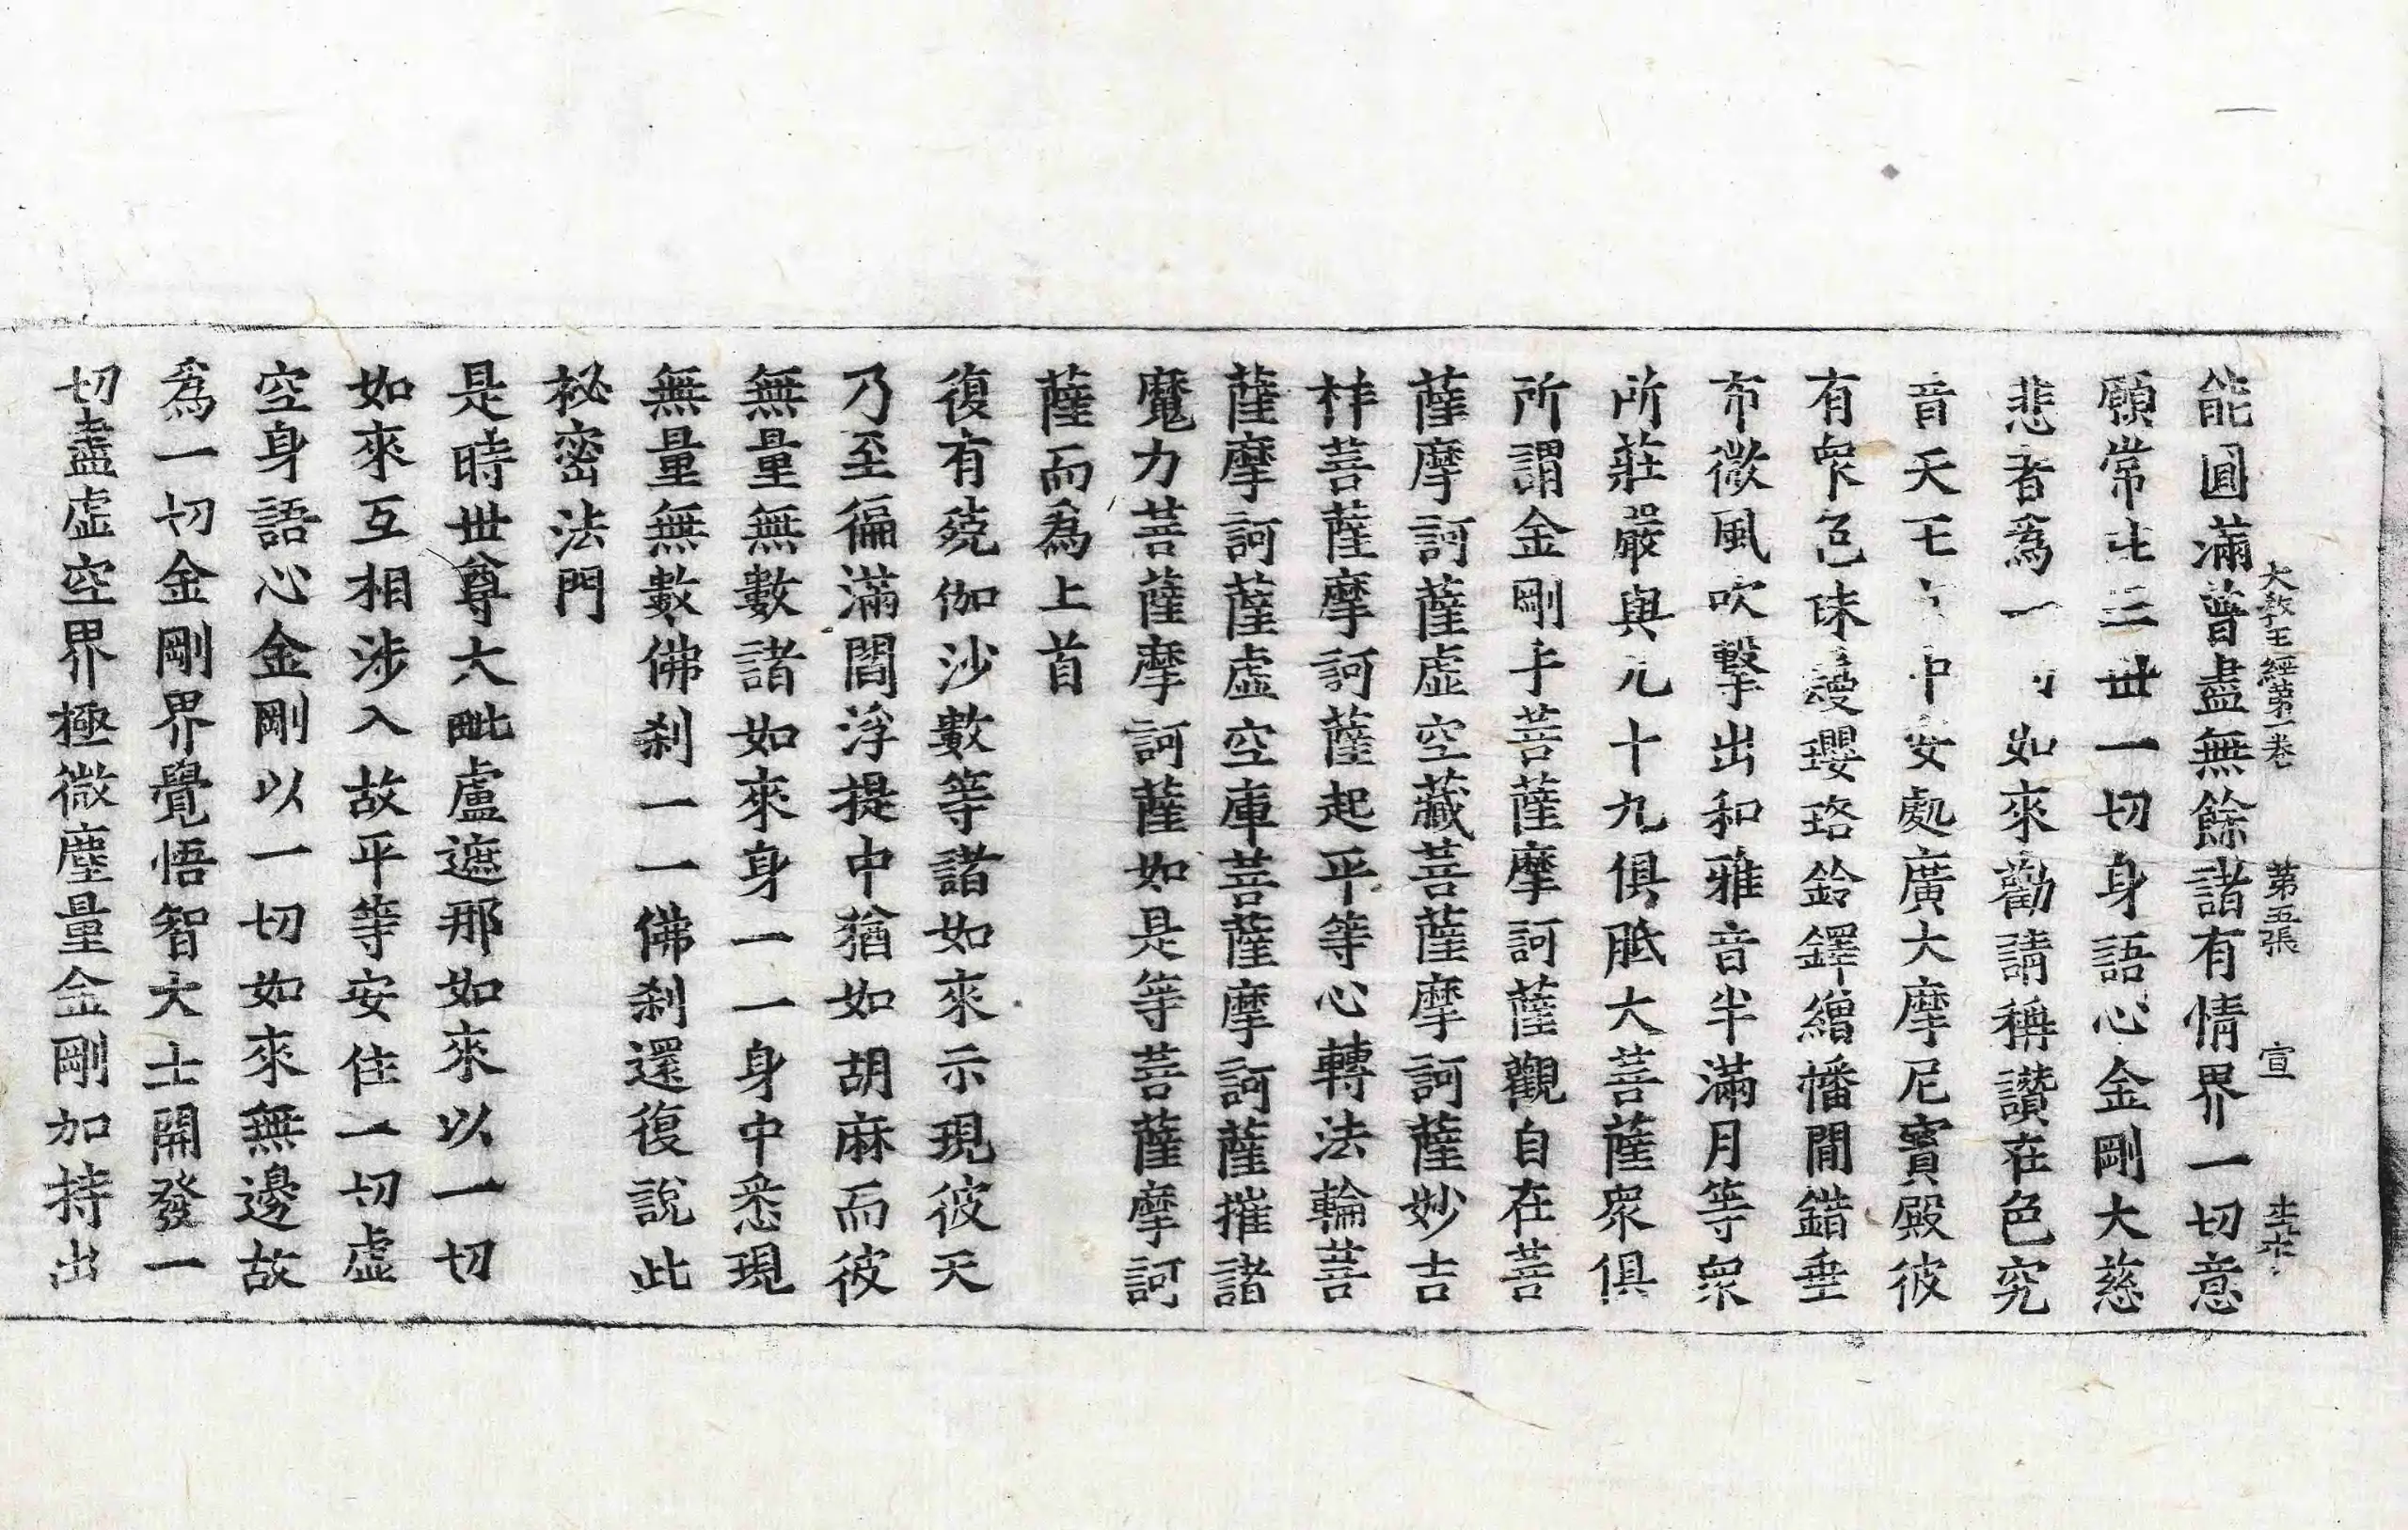 大教王經第一卷　第五張　宣
能圓滿普盡無餘諸有情界一切意
願常住三世一切身語心金剛大慈
悲者爲一切如來勸請稱讚在色究
竟天王宮中安處廣大摩尼寶殿彼
有眾色殊妙瓔珞鈴鐸繒幡間錯垂
布微風吹擊出和雅音半滿月等衆
所莊嚴與九十九俱胝大菩薩眾俱
所謂金剛手菩薩摩訶薩觀自在菩
薩摩訶薩虛空藏菩薩摩訶薩妙吉
祥菩薩摩訶薩起平等心轉法輪菩
薩摩訶薩虛空庫菩薩摩訶薩摧諸
魔力菩薩摩訶薩如是等菩薩摩訶
薩而爲上首
復有殑伽沙數等諸如來示現彼天
乃至徧滿閻浮提中猶如胡麻而彼
無量無數諸如來身一一身中悉現
無量無數佛刹一一佛刹還復說此
祕密法門
是時世尊大毗盧遮那如來以一切
如來互相涉入故平等安住一切虛
空身語心金剛以一切如來無邊故
爲一切金剛界覺悟智大士開發一
切盡虛空界極微塵量金剛加持出